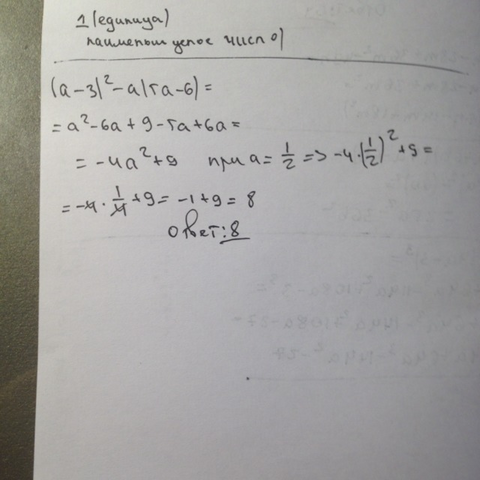 1 (единица)
наименьш целое число)
(a-3)²-a(5a-6)=
=a²-6a+9-5a+6a=
=-4a²+9 при a=1/2 => -4·(1/2)²+9=
=-4·1/4+9=-1+9=8
Ответ:8